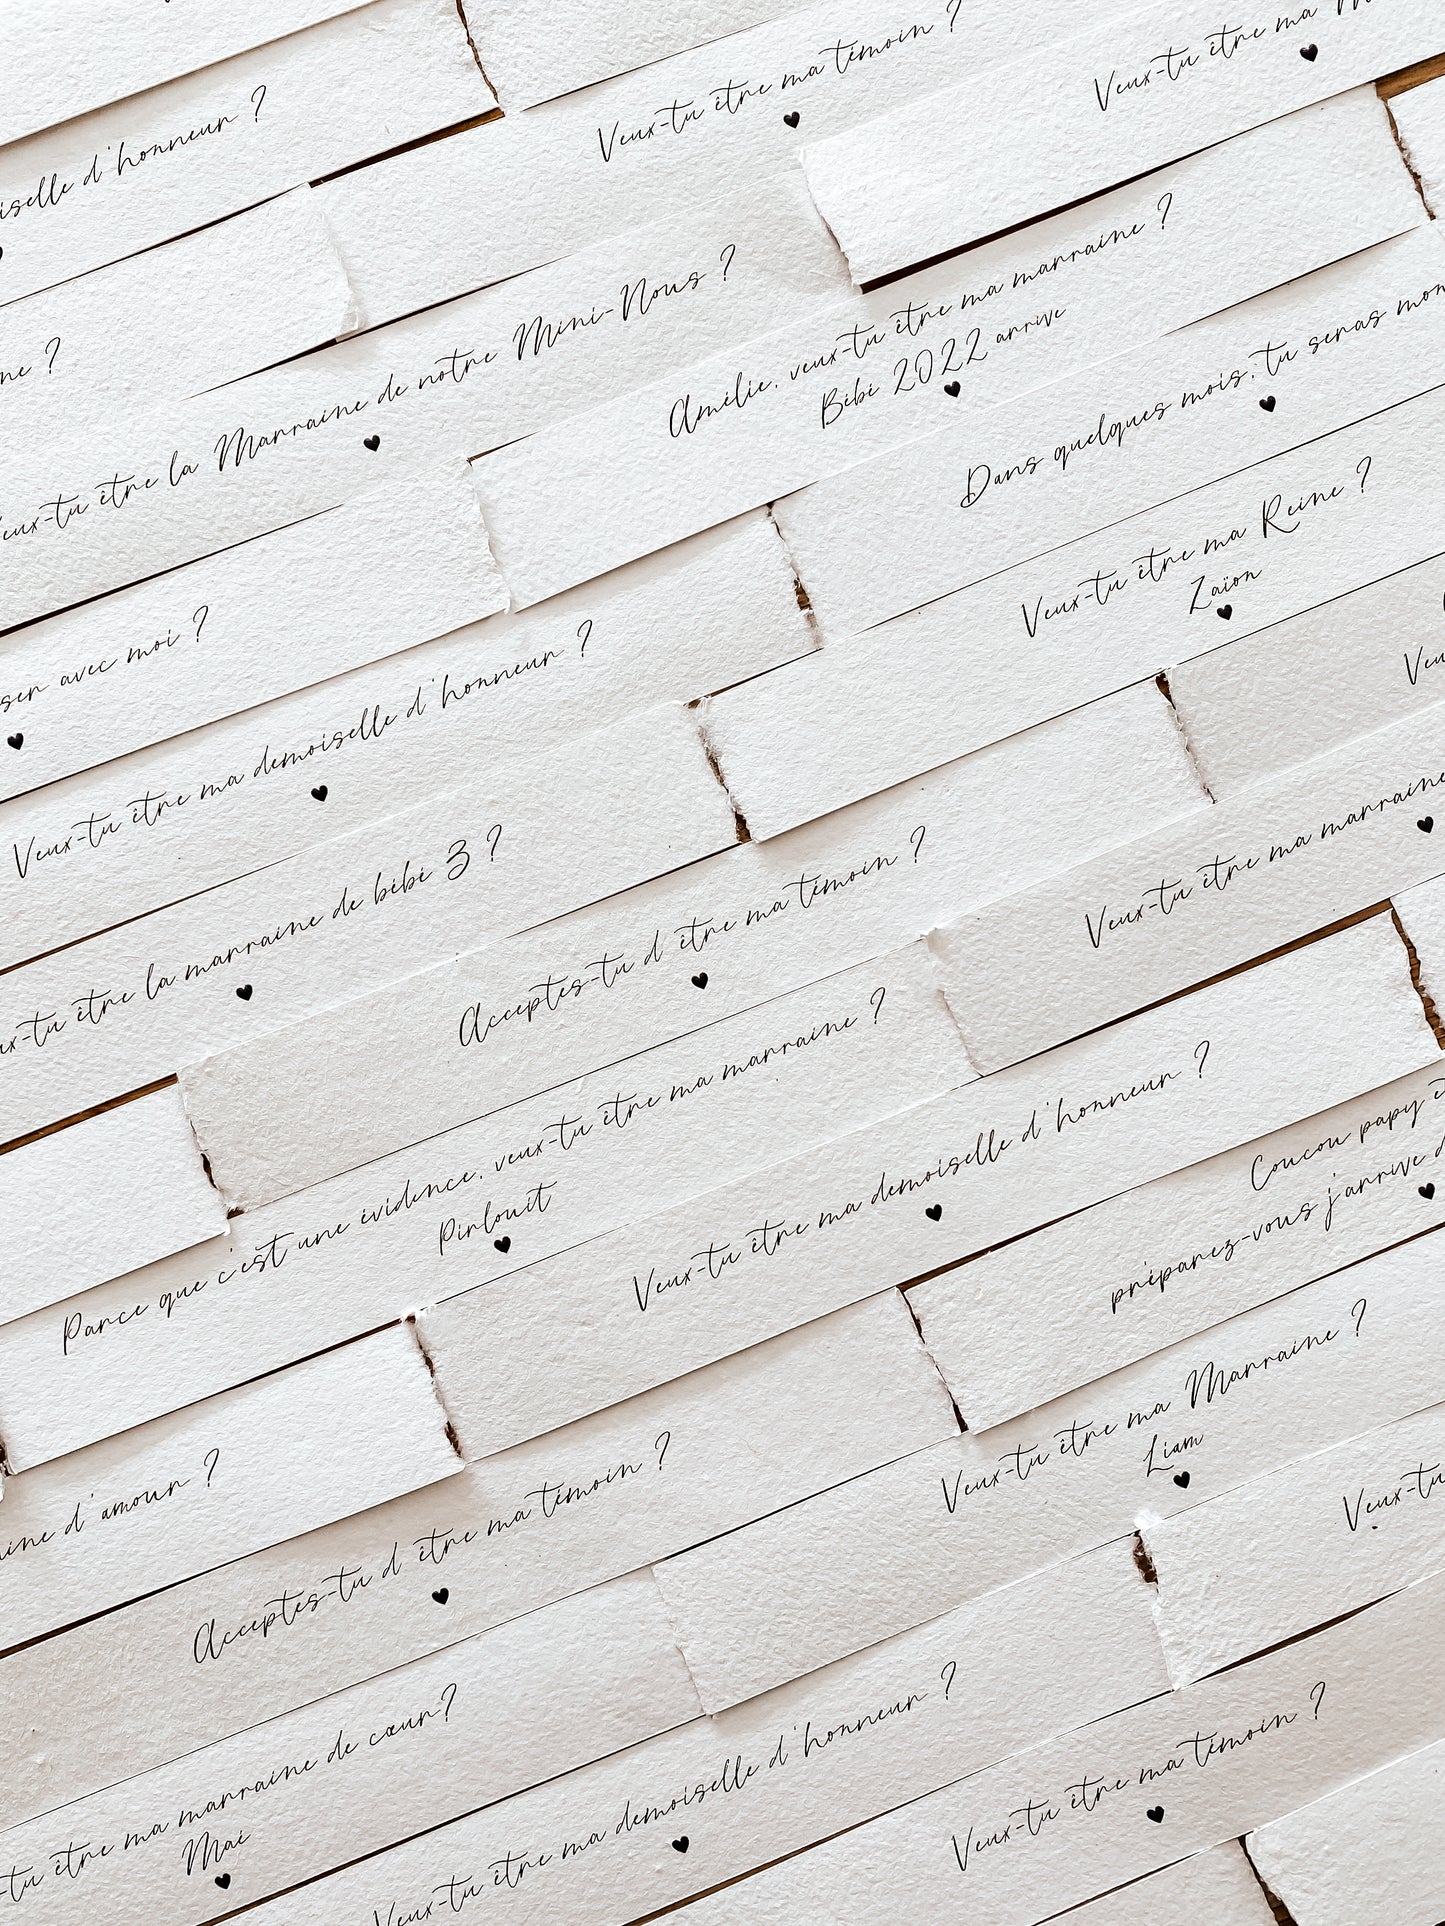 Veux-tu être ma témoin ?
Veux-tu être ma
demoiselle d'honneur ?
Veux-tu être la Marraine de notre Mini-Nous ?
Amélie, veux-tu être ma marraine ?
Bébé 2022 arrive
Dans quelques mois, tu seras mon
avec moi ?
Veux-tu être ma Reine ?
Zaïon
Veux-tu être ma demoiselle d'honneur ?
Veux-tu être la marraine de bébé 3 ?
Acceptes-tu d'être ma témoin ?
Veux-tu être ma marraine
Parce que c'est une évidence, veux-tu être ma marraine ?
Pirlouit
Veux-tu être ma demoiselle d'honneur ?
Coucou papy
préparez-vous j'arrive
d'amour ?
Acceptes-tu d'être ma témoin ?
Veux-tu être ma Marraine ?
Liam
Veux-tu
-tu être ma marraine de cœur?
Maé
Veux-tu être ma demoiselle d'honneur ?
Veux-tu être ma témoin ?